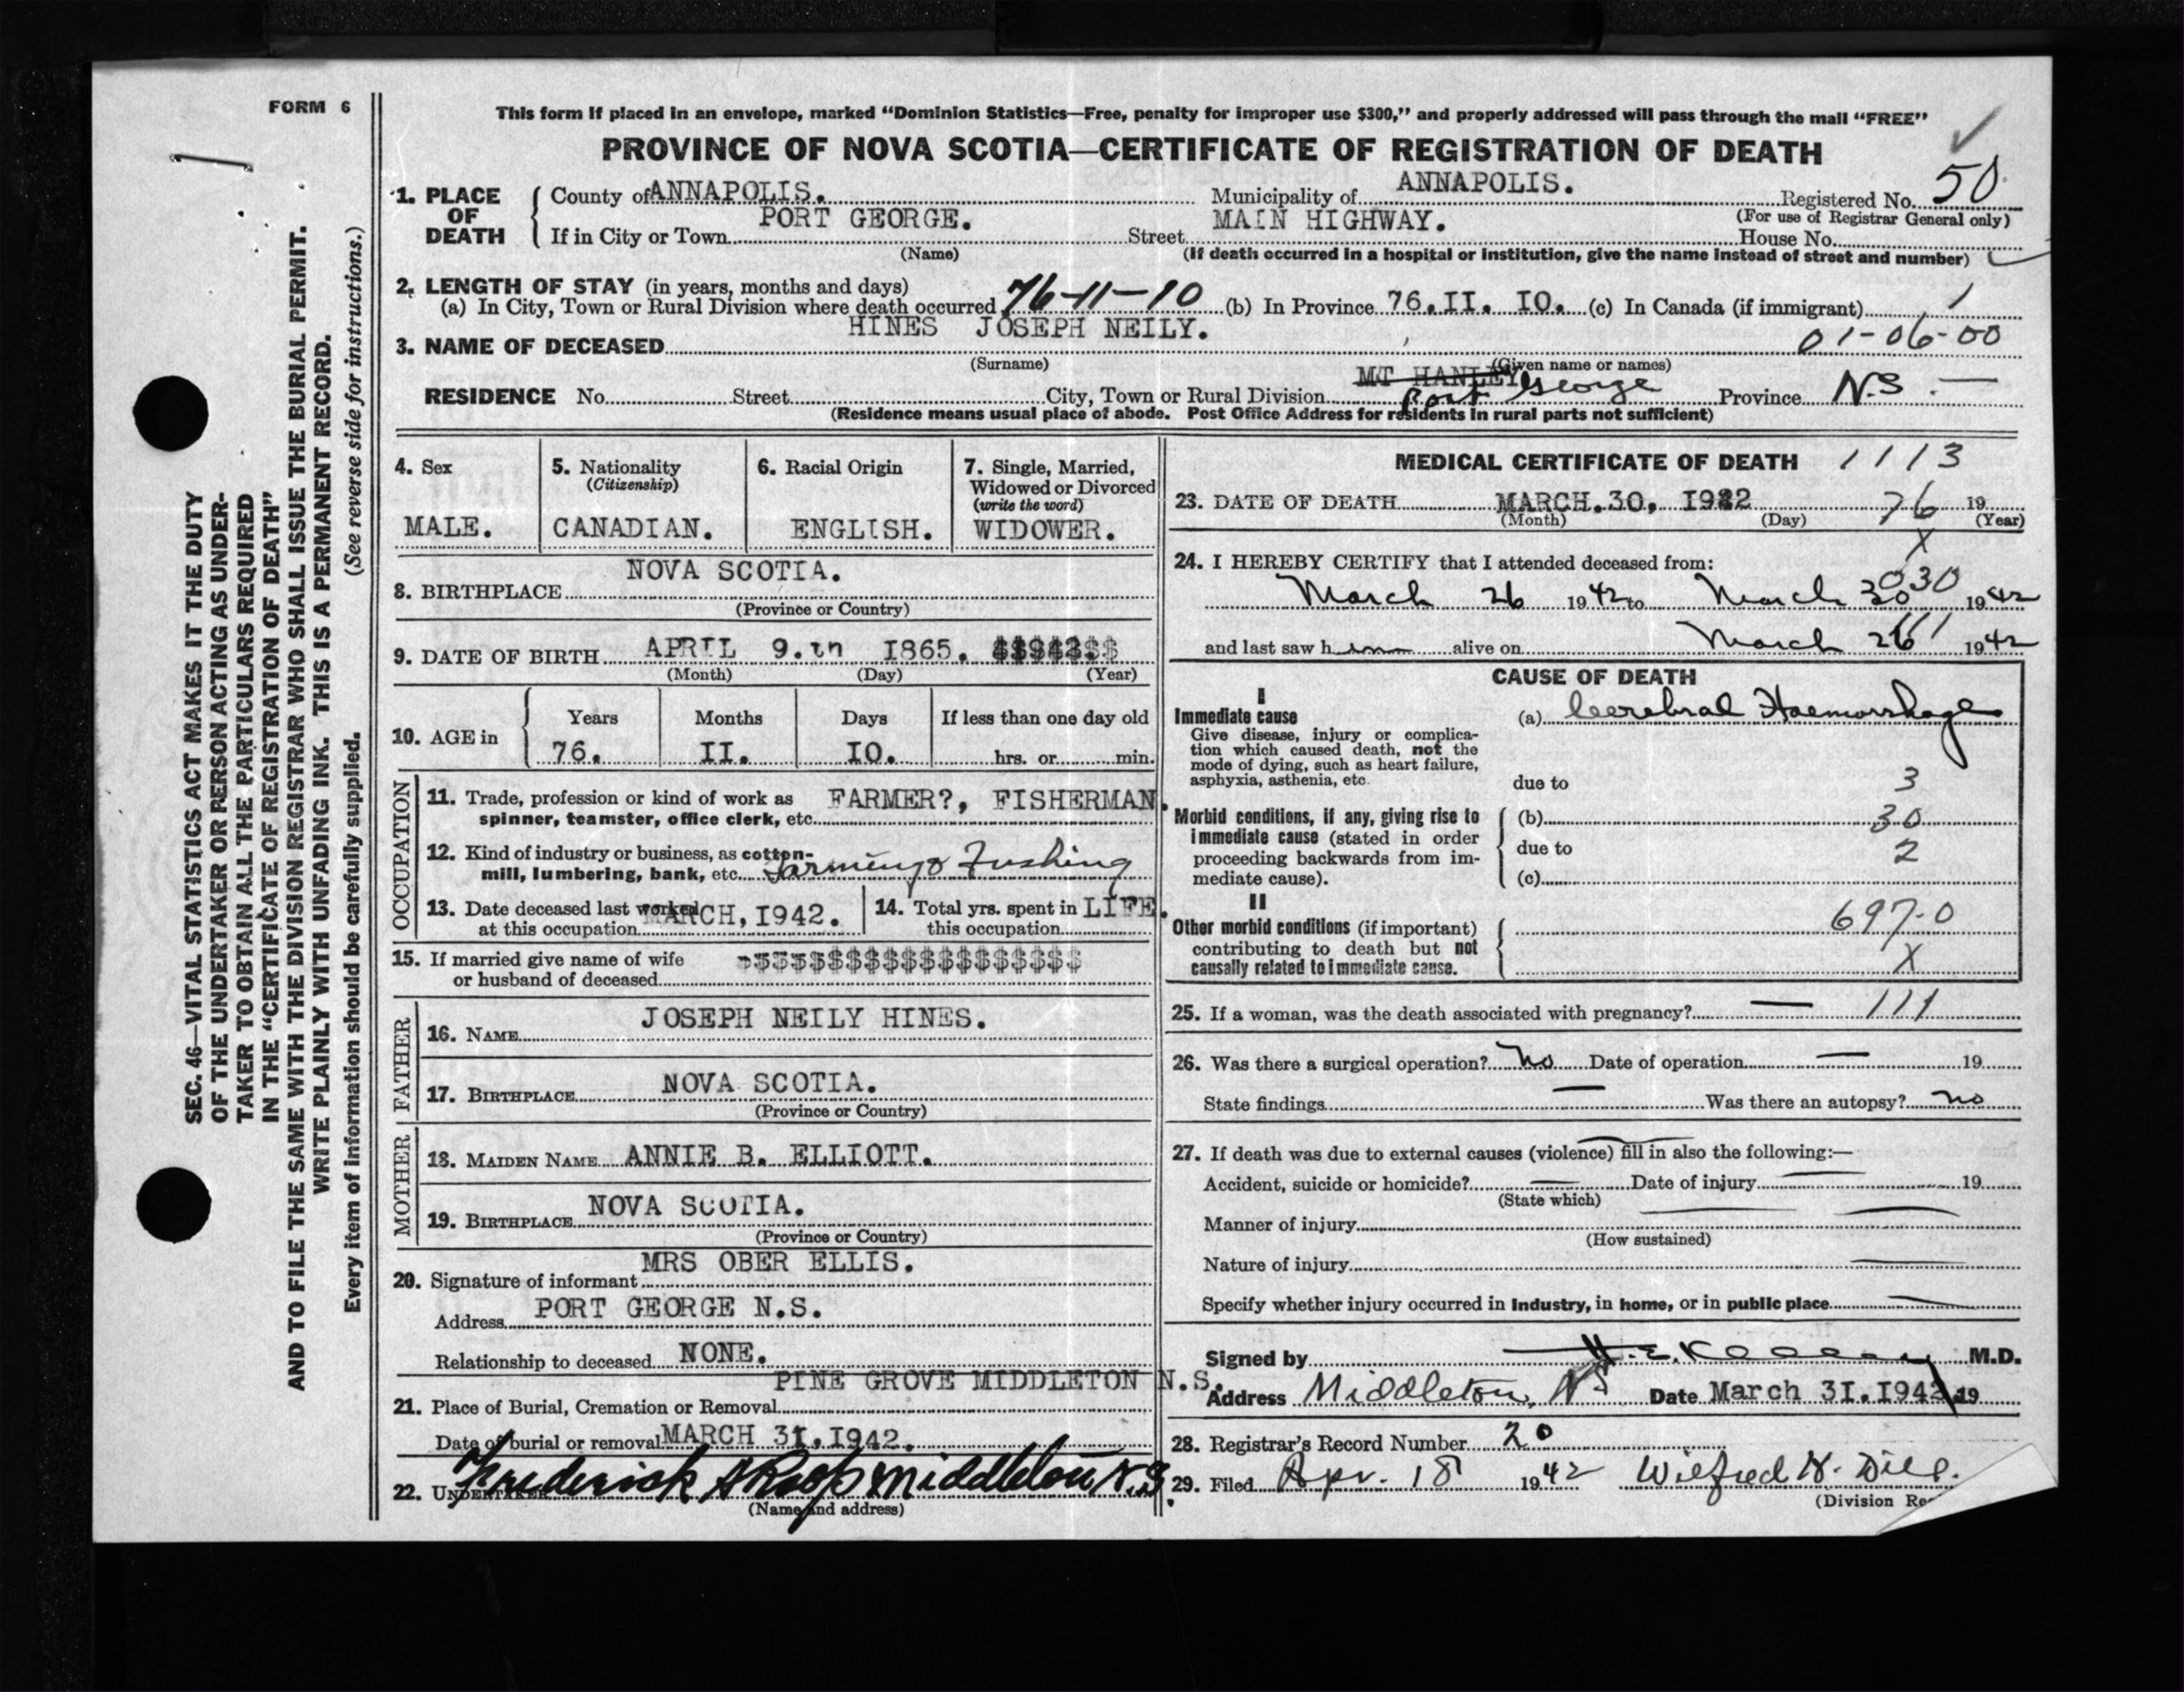 FORM 6
This form if placed in an envelope, marked “Dominion Statistics—Free, penalty for improper use $300,” and properly addressed will pass through the mail “FREE”
PROVINCE OF NOVA SCOTIA—CERTIFICATE OF REGISTRATION OF DEATH
1. PLACE OF DEATH
County of ANNAPOLIS. Municipality of ANNAPOLIS. Registered No. 50
(For use of Registrar General only)
If in City or Town PORT GEORGE. Street MAIN HIGHWAY. House No.
(Name) (If death occurred in a hospital or institution, give the name instead of street and number)
2. LENGTH OF STAY (in years, months and days)
(a) In City, Town or Rural Division where death occurred 76-11-10 (b) In Province 76.II. IO. (c) In Canada (if immigrant) 1
3. NAME OF DECEASED HINES JOSEPH NEILY. 01-06-00
(Surname) (Given name or names)
RESIDENCE No. Street City, Town or Rural Division MT HANLEY Port George Province N.S. —
(Residence means usual place of abode. Post Office Address for residents in rural parts not sufficient)
4. Sex
MALE.
5. Nationality
(Citizenship)
CANADIAN.
6. Racial Origin
ENGLISH.
7. Single, Married,
Widowed or Divorced
(write the word)
WIDOWER.
8. BIRTHPLACE NOVA SCOTIA.
(Province or Country)
9. DATE OF BIRTH APRIL 9.th 1865.
(Month) (Day) (Year)
10. AGE in
Years Months Days If less than one day old
76. II. IO. hrs. or min.
OCCUPATION
11. Trade, profession or kind of work as FARMER?, FISHERMAN.
spinner, teamster, office clerk, etc.
12. Kind of industry or business, as cotton-
mill, lumbering, bank, etc. Farming & Fushing
13. Date deceased last worked
at this occupation MARCH, I942.
14. Total yrs. spent in
this occupation LIFE.
15. If married give name of wife
or husband of deceased $$$$$$$$$$$$$$$$$$$
FATHER
16. NAME JOSEPH NEILY HINES.
17. BIRTHPLACE NOVA SCOTIA.
(Province or Country)
MOTHER
18. MAIDEN NAME ANNIE B. ELLIOTT.
19. BIRTHPLACE NOVA SCOTIA.
(Province or Country)
20. Signature of informant MRS OBER ELLIS.
Address PORT GEORGE N.S.
Relationship to deceased NONE.
21. Place of Burial, Cremation or Removal PINE GROVE MIDDLETON N.S.
Date of burial or removal MARCH 31, I942.
22. UNDERTAKER Frederick A Roop Middleton N.S
(Name and address)
MEDICAL CERTIFICATE OF DEATH 1113
23. DATE OF DEATH MARCH.30, I942 76 19
(Month) (Day) (Year)
X
24. I HEREBY CERTIFY that I attended deceased from:
030
March 26 1942 to March 30 1942
111
and last saw him alive on March 26 1942
CAUSE OF DEATH
I
Immediate cause
Give disease, injury or complica-
tion which caused death, not the
mode of dying, such as heart failure,
asphyxia, asthenia, etc.
(a) Cerebral Haemorrhage
due to 3
Morbid conditions, if any, giving rise to
immediate cause (stated in order
proceeding backwards from im-
mediate cause).
(b) 30
due to 2
(c)
II
Other morbid conditions (if important)
contributing to death but not
causally related to immediate cause.
697-0
X
25. If a woman, was the death associated with pregnancy? — 111
26. Was there a surgical operation? No Date of operation — 19
State findings — Was there an autopsy? no
27. If death was due to external causes (violence) fill in also the following:—
Accident, suicide or homicide? — Date of injury — 19
(State which)
Manner of injury
(How sustained)
Nature of injury —
Specify whether injury occurred in Industry, in home, or in public place —
Signed by H.E. M.D.
Address Middleton, NS Date March 3I.I942 19
28. Registrar's Record Number 20
29. Filed Apr. 18 1942 Wilfred H.
(Division
SEC. 46—VITAL STATISTICS ACT MAKES IT THE DUTY
OF THE UNDERTAKER OR PERSON ACTING AS UNDER-
TAKER TO OBTAIN ALL THE PARTICULARS REQUIRED
IN THE “CERTIFICATE OF REGISTRATION OF DEATH”
AND TO FILE THE SAME WITH THE DIVISION REGISTRAR WHO SHALL ISSUE THE BURIAL PERMIT.
WRITE PLAINLY WITH UNFADING INK. THIS IS A PERMANENT RECORD.
Every item of information should be carefully supplied. (See reverse side for instructions.)